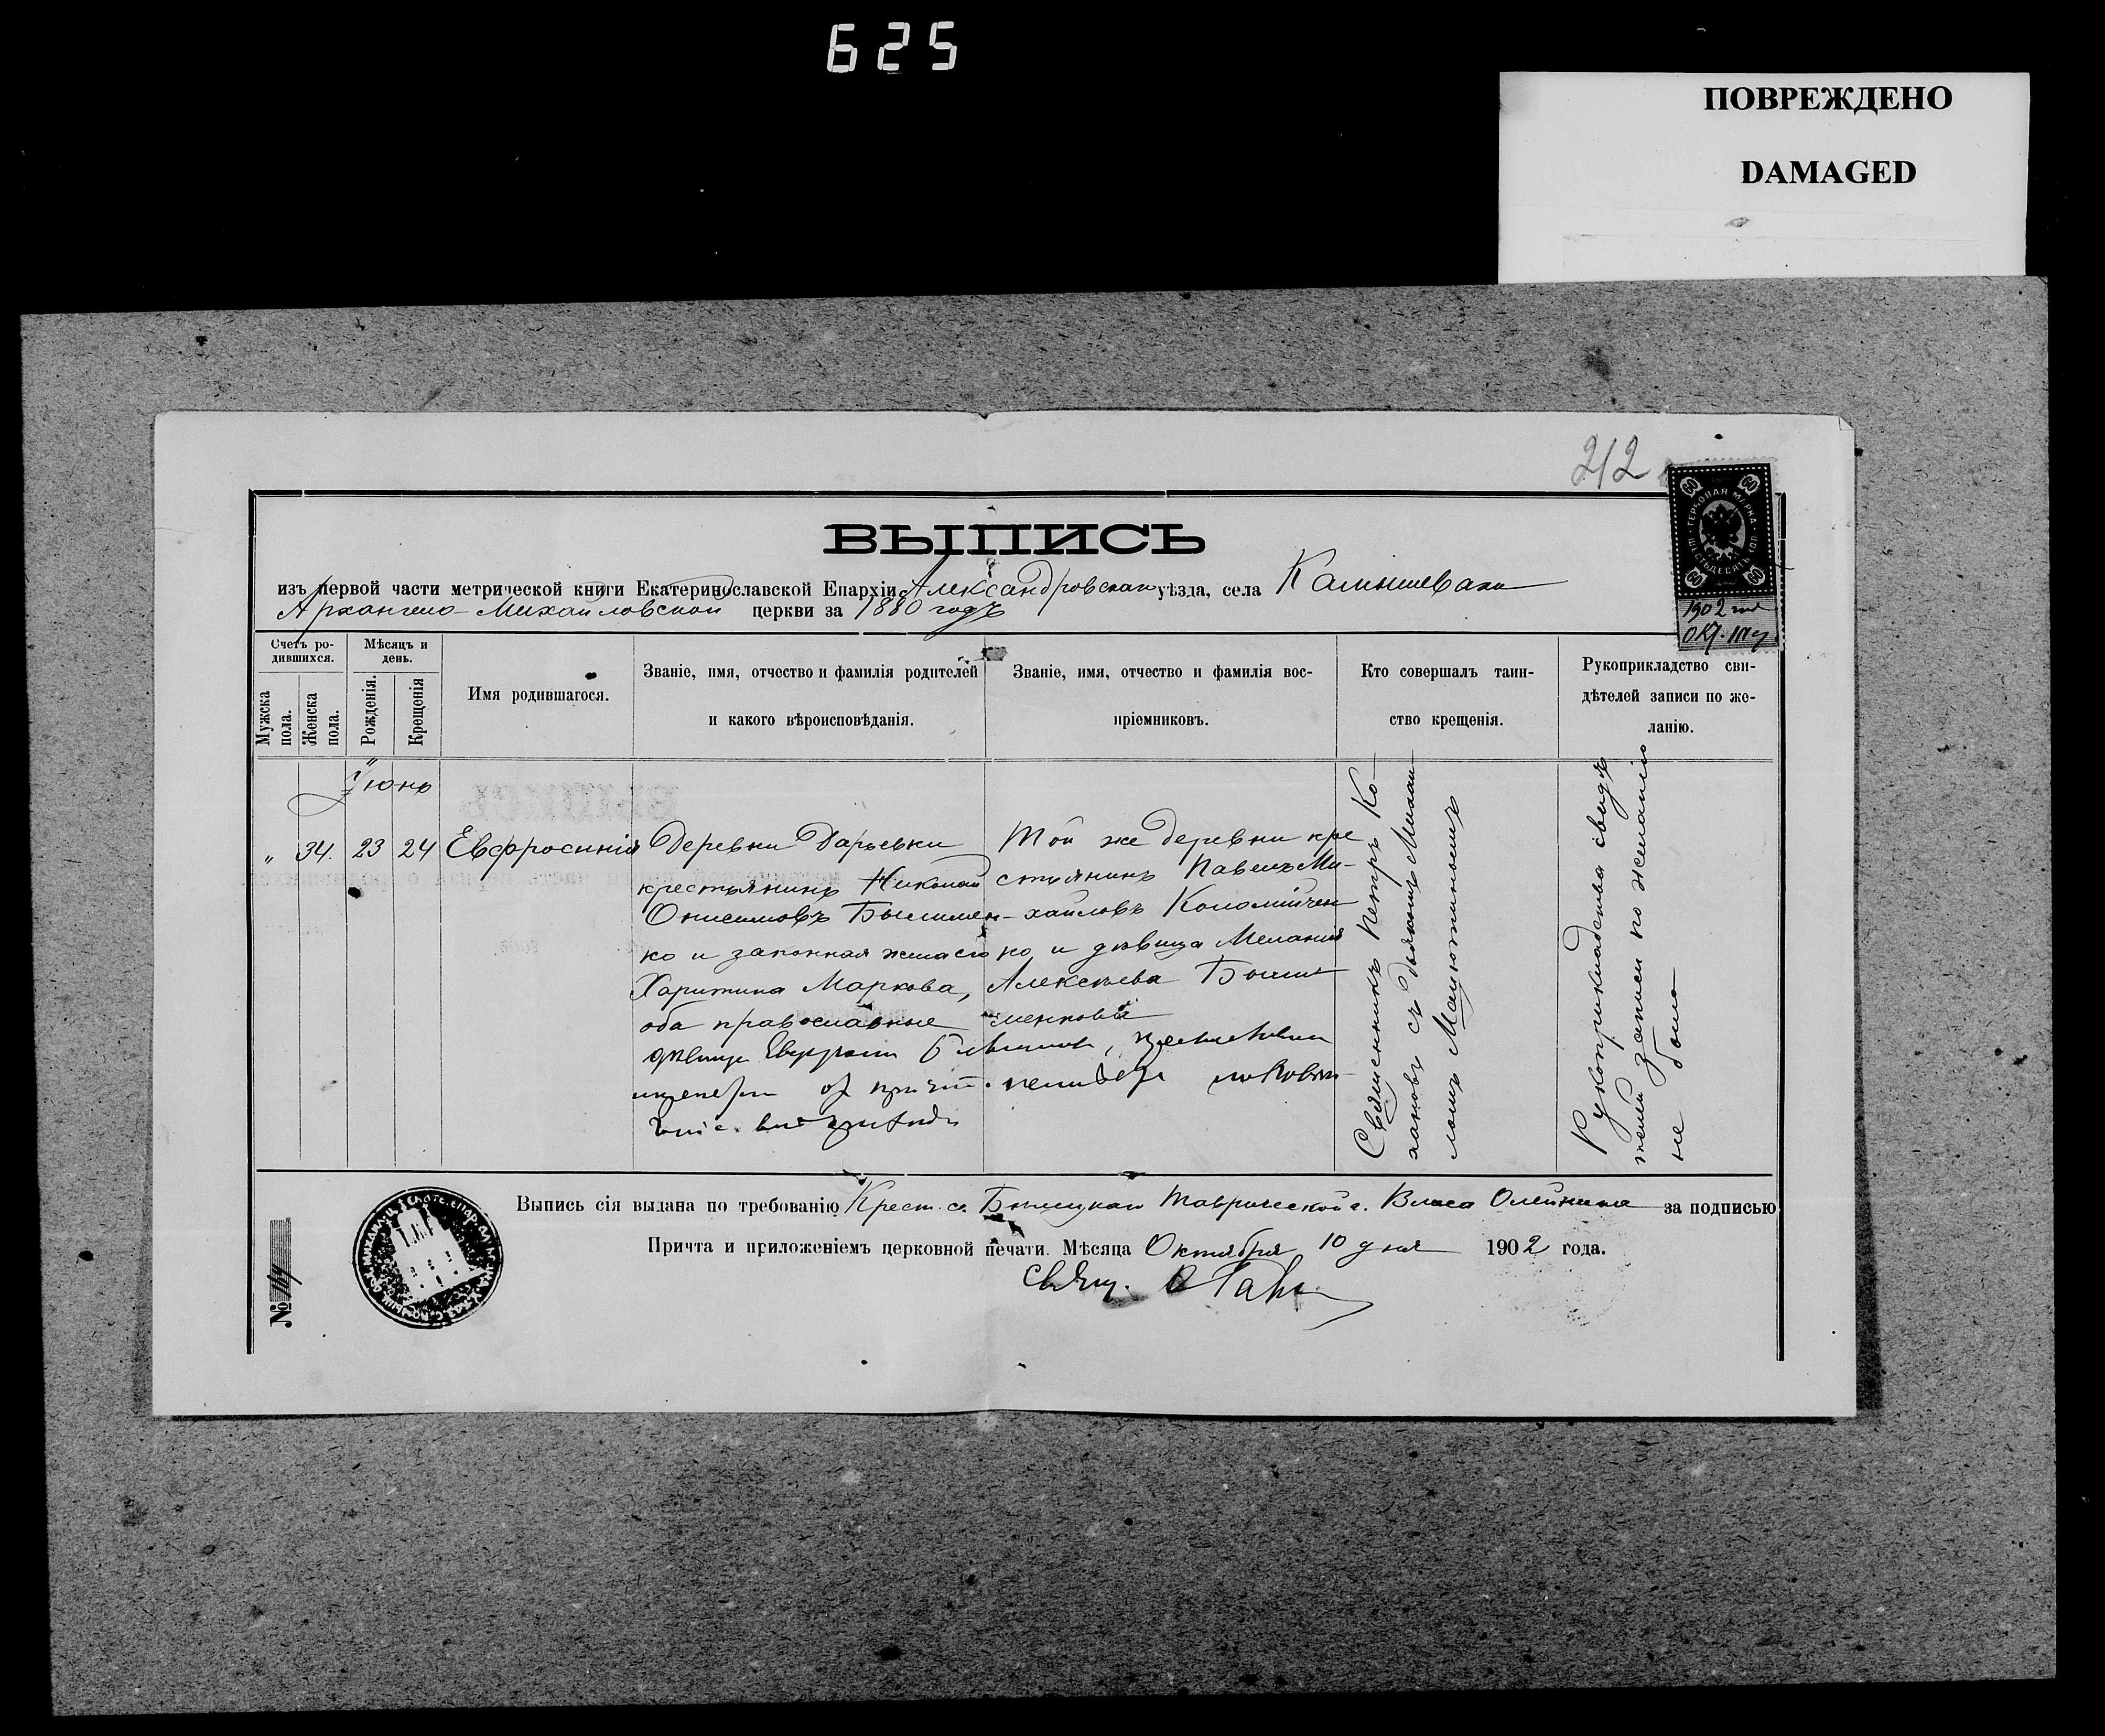 625
ПОВРЕЖДЕНО
DAMAGED
212
ВЫПИСЬ
изъ первой части метрической книги Екатеринославской Епархіи Александровскаго уѣзда, села Камышеваха
Архангело-Михайловской церкви за 1880 годъ
ГЕРБОВАЯ МАРКА
ШЕСТЬДЕСЯТЪ КОП
60 60
60 60
1902 год
Окт.
Счетъ родившихся.
Мужска пола.
Женска пола.
Мѣсяцъ и день.
Рожденія.
Крещенія
Имя родившагося.
Званіе, имя, отчество и фамилія родителей
и какого вѣроисповѣданія.
Званіе, имя, отчество и фамилія вос-
пріемниковъ.
Кто совершалъ таин-
ство крещенія.
Рукоприкладство сви-
дѣтелей записи по же-
ланію.
Іюнь
" 34. 23 24 Евфросинія
Деревни Дарьевки
крестьянинъ Николай
Онисимовъ Бышимен-
ко и законная жена его
Харитина Маркова,
оба православные
Той же деревни кре
стьянинъ Павелъ Ми-
хайловъ Коломійчен
ко и дѣвица Меланія
Алексѣева Быши
менкова
Священникъ Петръ Ко-
хановъ съ дьякомъ Михаи-
ломъ
Рукоприкладства свидѣ
телей записи по желанію
не было
дѣвица
Выпись сія выдана по требованію Крест. с. Таврической г. Власа Олейника за подписью
Причта и приложеніемъ церковной печати. Мѣсяца Октября 10 дня 1902 года.
Свящ.
№